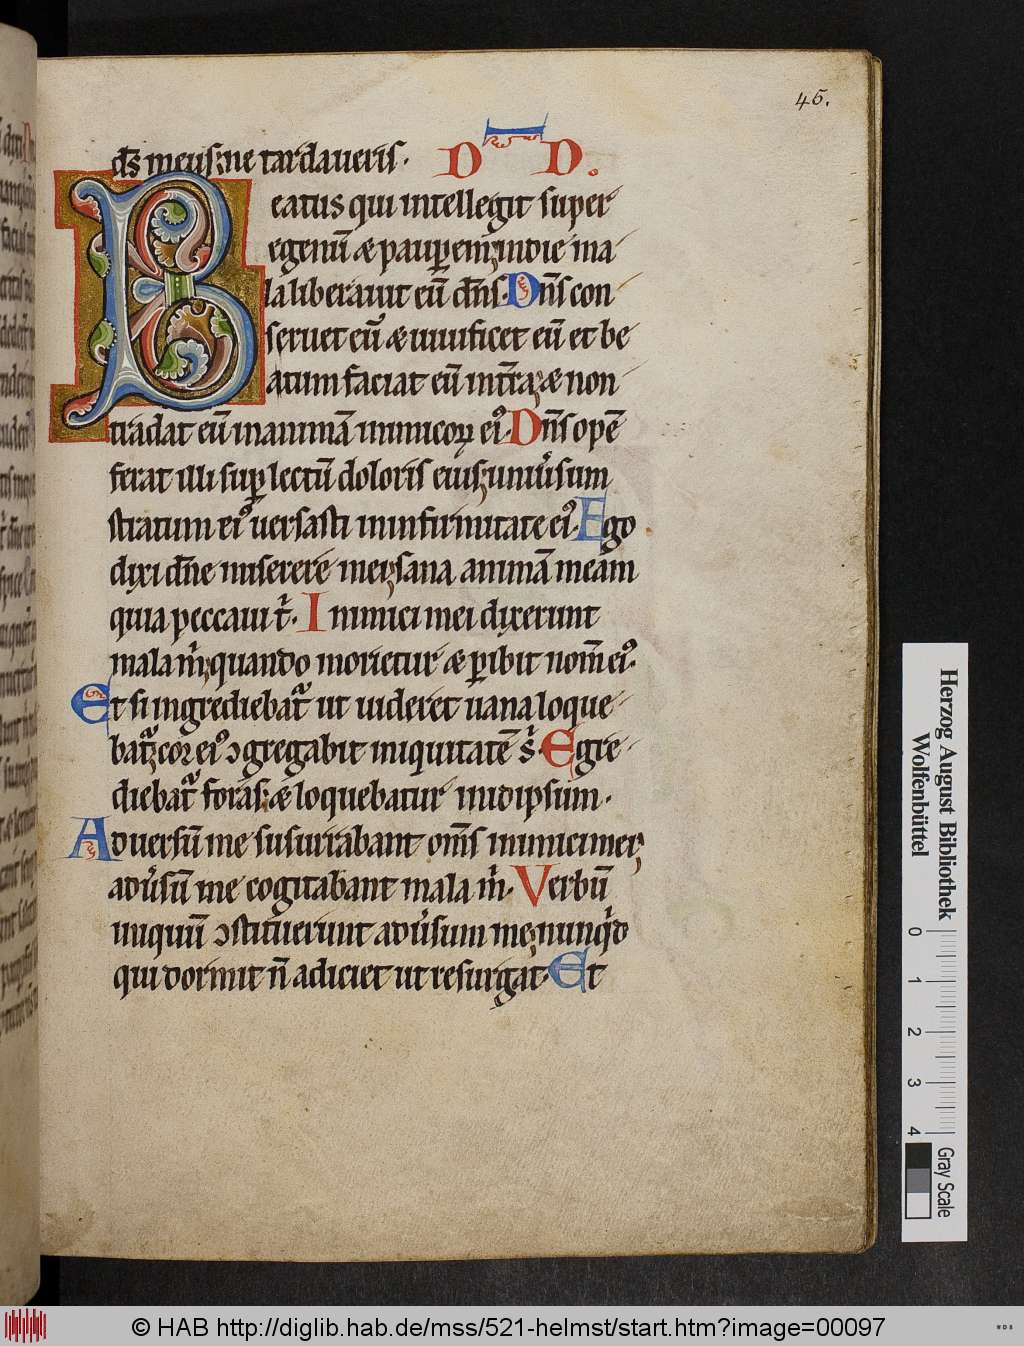 46.
ds̄ meus ne tardaueris. D T D.
Beatus qui intellegit super
egenū æ paupem; indie ma
la liberauit eū dn̄s. Dn̄s con
seruet eū æ uiuificet eū et be
atum faciat eū intr̄a; æ non
tradat eū inanimā inimicoꝝ eiꝰ. Dn̄s opē
ferat illi suꝑ lectū doloris eius; uniu̓sum
stratum eiꝰ uersasti ininfirmitate eiꝰ. Ego
dixi dn̄e miserere mei; sana animā meam
quia peccaui t̓. Inimici mei dixerunt
mala m̓; quando morietur æ ꝑibit nom̄ eiꝰ.
Et si ingrediebat᷑ ut uideret uana loque
bat᷑; cor eiꝰ ↄgregabit iniquitatē s̓. Egre
diebat᷑ foras; æ loquebatur inidipsum.
Aduersū me susurrabant om̄s inimici mei;
adu̓sū me cogitabant mala m̓. Verbū
iniquū ↄstituerunt adu̓sum me; nunqd
qui dormit n̄ adiciet ut resurgat. Et
Herzog August Bibliothek
Wolfenbüttel
0 1 2 3 4
Gray Scale
© HAB http://diglib.hab.de/mss/521-helmst/start.htm?image=00097